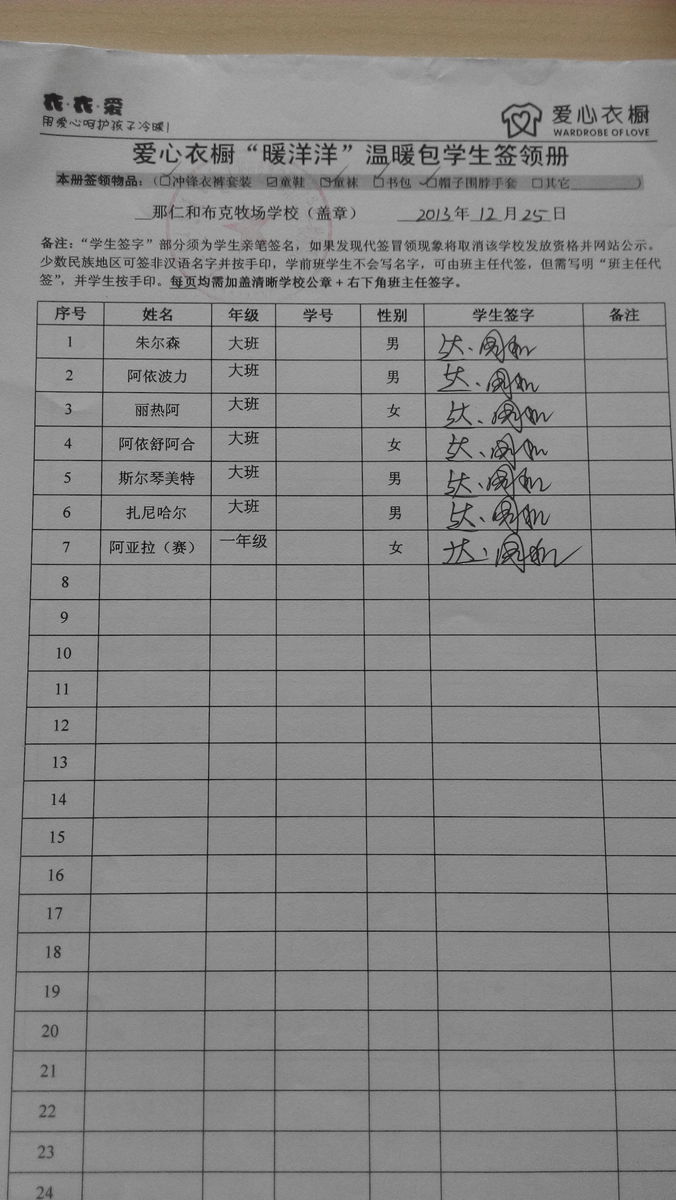 衣·衣·爱
用爱心呵护孩子冷暖!
爱心衣橱
WARDROBE OF LOVE
爱心衣橱“暖洋洋”温暖包学生签领册
本册签领物品：（☑冲锋衣裤套装 ☑童鞋 ☑童袜 ☑书包 ☑帽子围脖手套 □其它________）
__那仁和布克牧场学校（盖章） 2013年12月25日
备注：“学生签字”部分须为学生亲笔签名，如果发现代签冒领现象将取消该学校发放资格并网站公示。
少数民族地区可签非汉语名字并按手印，学前班学生不会写名字，可由班主任代签，但需写明“班主任代
签”，并学生按手印。每页均需加盖清晰学校公章+右下角班主任签字。
序号 姓名 年级 学号 性别 学生签字 备注
1 朱尔森 大班 男
2 阿依波力 大班 男
3 丽热阿 大班 女
4 阿依舒阿合 大班 女
5 斯尔琴美特 大班 男
6 扎尼哈尔 大班 男
7 阿亚拉（赛） 一年级 女
8
9
10
11
12
13
14
15
16
17
18
19
20
21
22
23
24